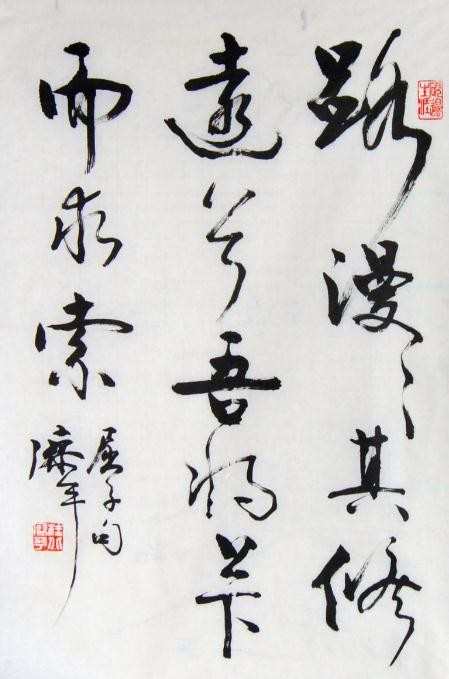 路漫〻其修
遠兮吾将上下
而求索
屈子句